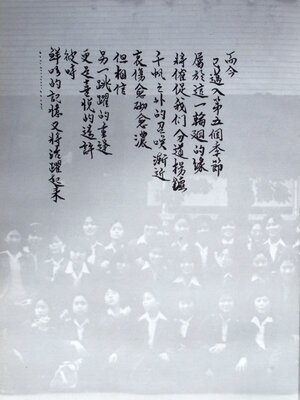 而今
已邁入第五個季節
屬於這一輪迴的緣
將催促我們分道揚鑣
千帆之外的召喚漸近
哀傷愈砌愈濃
但相信
另一跳躍的重逢
更是喜悅的遠許
彼時
鮮明的記憶又將活躍起來